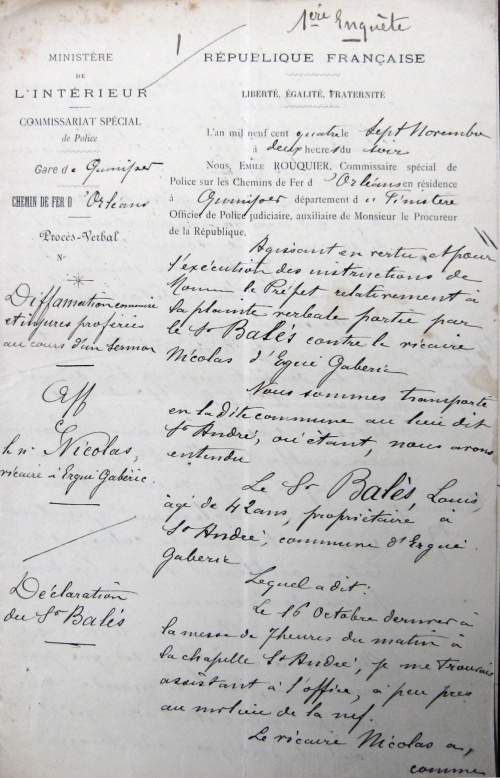 1ère Enquête
MINISTÈRE
DE
L'INTÉRIEUR
COMMISSARIAT SPÉCIAL
de Police
Gare de Quimper
CHEMIN DE FER D'Orléans
Procès-Verbal
N°
Diffamation commise
et injures proférées
au cours d'un sermon
Aff
c.
Nicolas,
vicaire à Ergué Gabéric.
Déclaration
du Sr Balès
RÉPUBLIQUE FRANÇAISE
LIBERTÉ, ÉGALITÉ, FRATERNITÉ
L'an mil neuf cent quatre le sept Novembre
à deux heures du soir
Nous, EMILE ROUQUIER, Commissaire spécial de
Police sur les Chemins de Fer d'Orléans en résidence
à Quimper département du Finistère
Officier de Police judiciaire, auxiliaire de Monsieur le Procureur
de la République.
Agissant en vertu et pour
l'exécution des instructions de
le Préfet relativement à
la plainte verbale portée par
le Sr Balès contre le vicaire
Nicolas d'Ergué Gaberic
Nous sommes transporté
en la dite commune au lieu dit
St André, où étant, nous avons
entendu
Le Sr Balès, Louis,
âgé de 42 ans, propriétaire à
St André, commune d'Ergué
Gaberic
Lequel a dit:
Le 16 Octobre dernier à
la messe de 7 heures du matin à
la chapelle St André, je me trouvais
assistant à l'office, à peu près
au milieu de la nef.
Le vicaire Nicolas a,
comme